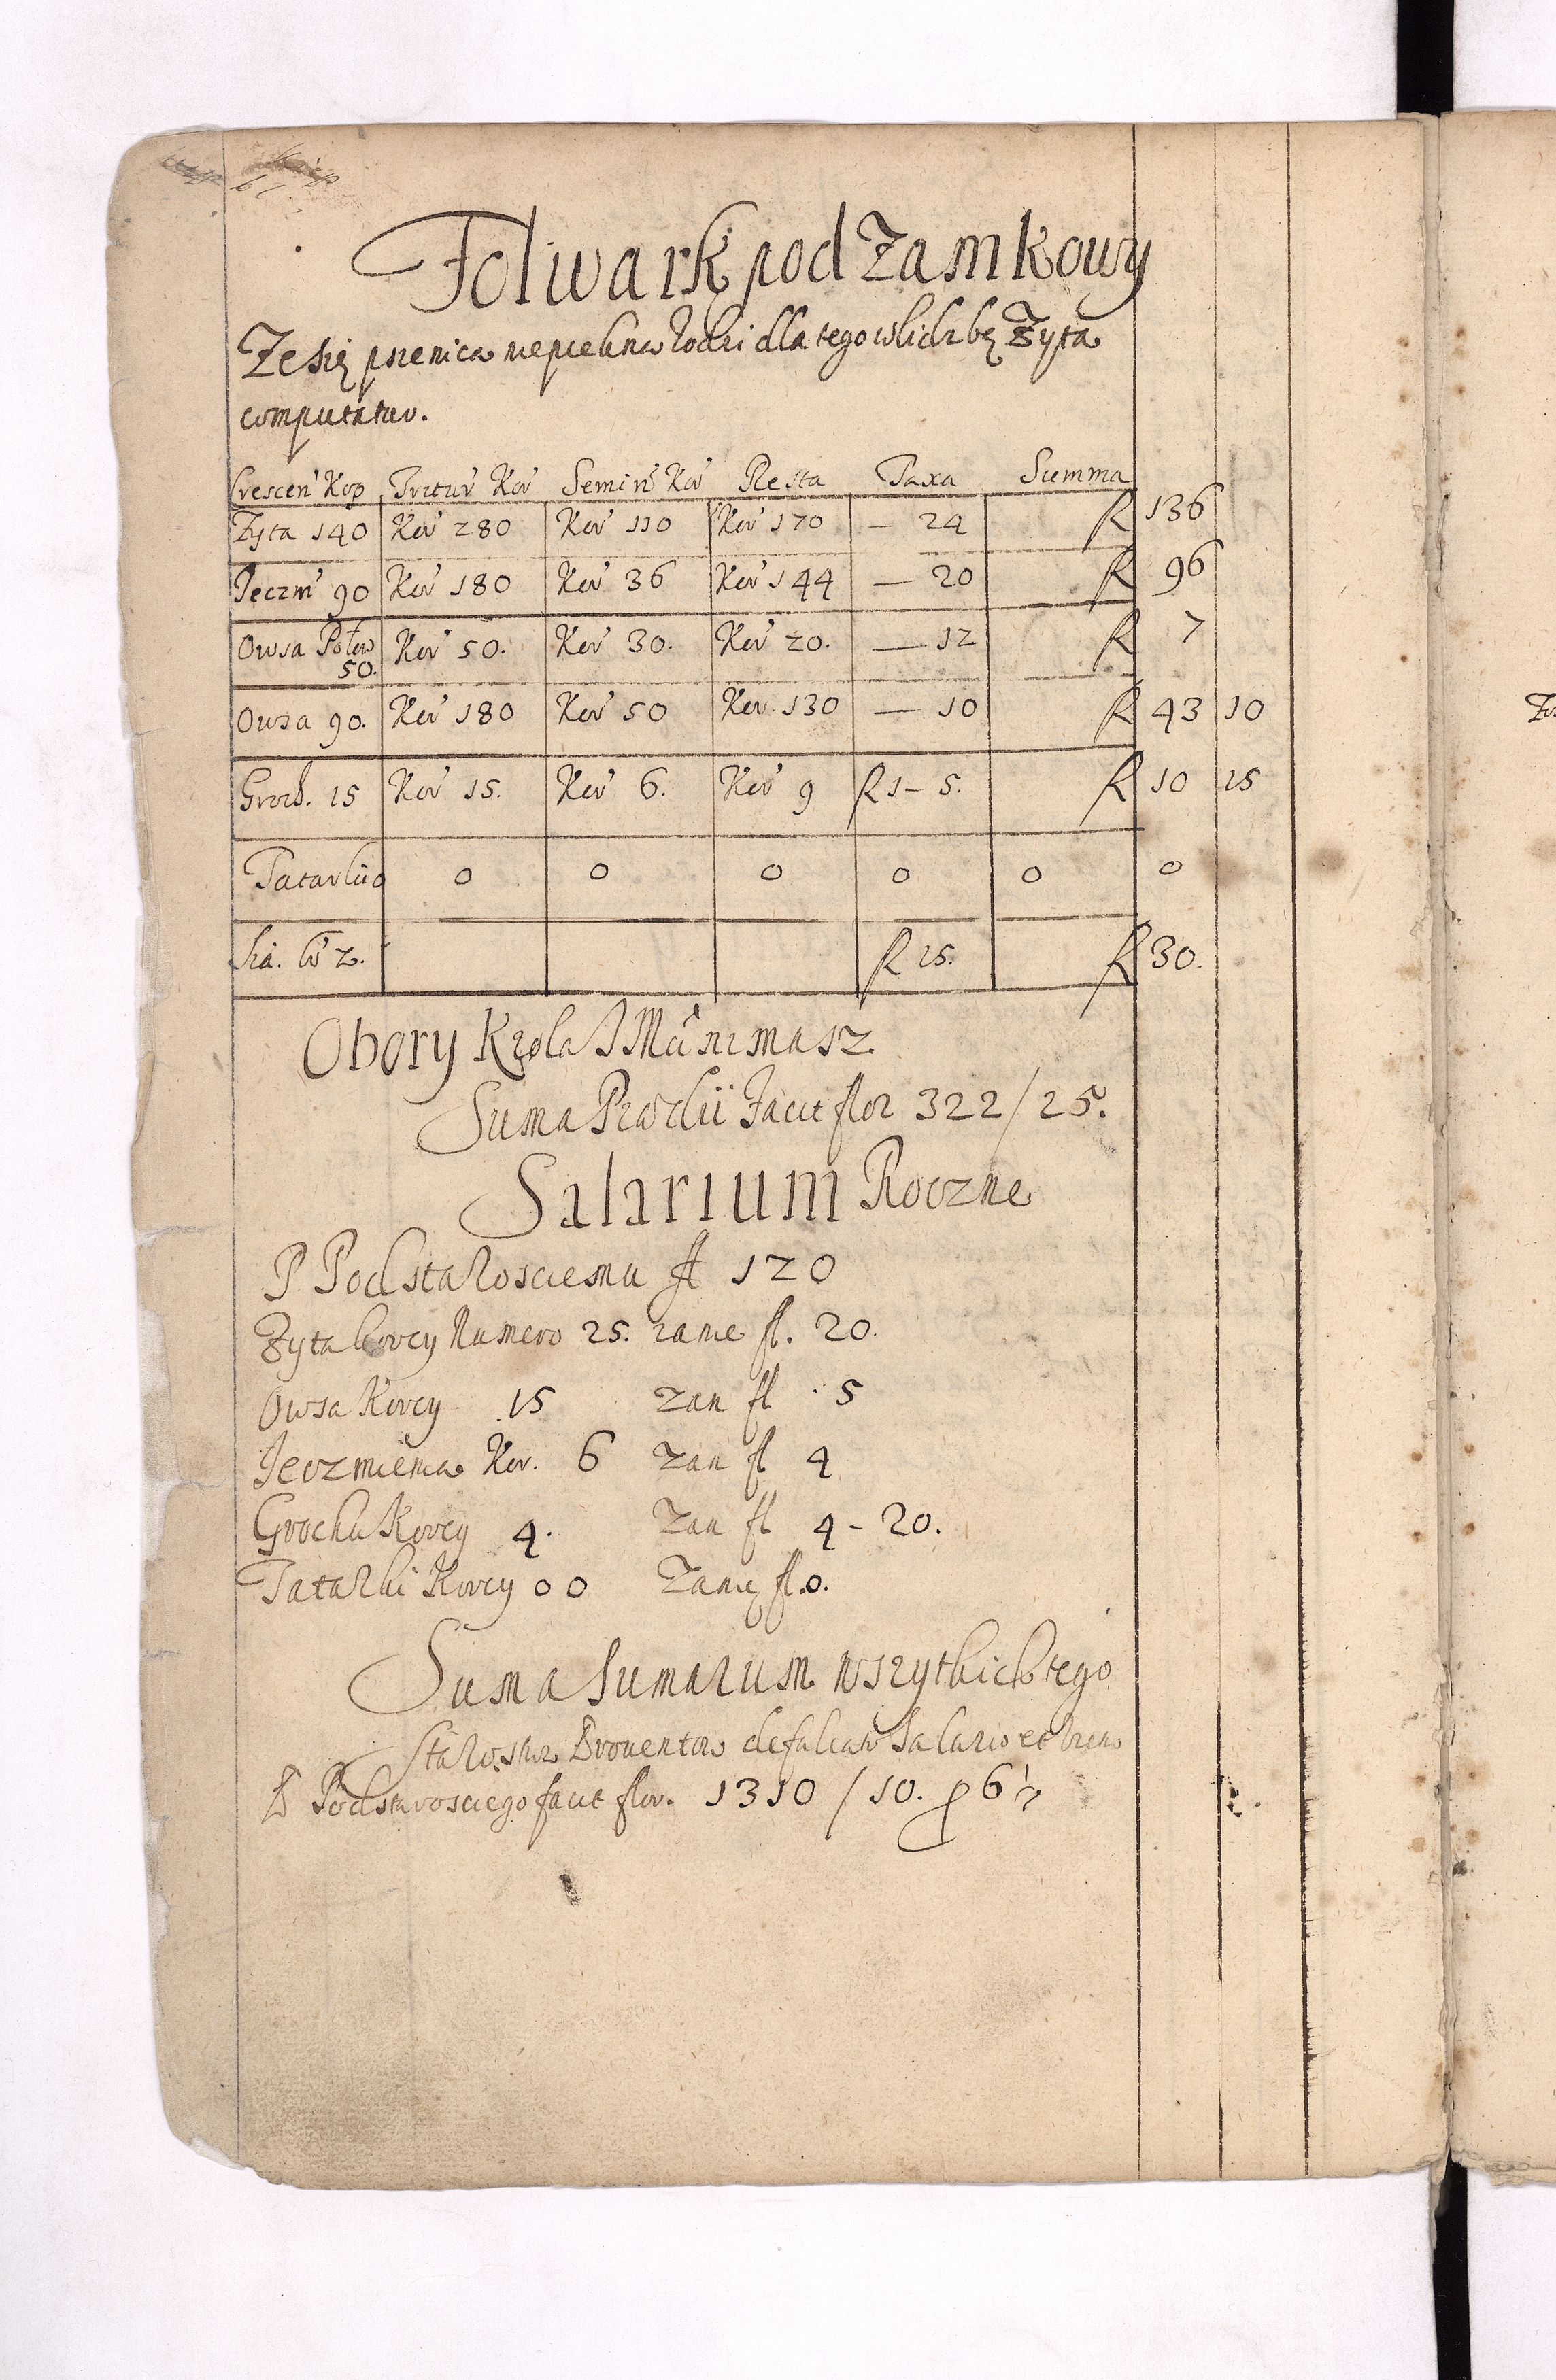 Folwark pod Zamkowy
Ze się psenica nepiekna rodzi dla tego w lidzbę Zyta
computatur.
Crescen Kop Tritur Kor Semin Kor Resta Taxa Summa
Zyta 140 Kor 280 Kor 110 Kor 170 — 24 fl 136
Jeczm 90 Kor 180 Kor 36 Kor 144 — 20 fl 96
Owsa 50. Kor 50. Kor 30. Kor 20. — 12 fl 7
Owsa 90. Kor 180 Kor 50 Kor 130 — 10 fl 43 10
Groch. 15 Kor 15. Kor 6. Kor 9 fl 1 - 5. fl 10 15
Tatarki 0 0 0 0 0 0 0
fl 15. fl 30.
Obory Krola JMci nimasz.
Suma Prædii facit flor 322/25.
Salarium Roczne
P Podstarosciemu fl 120
Zyta korcy Numero 25. zanie fl. 20.
Owsa Korcy 15 zan fl 5
Jeczmienia Kor. 6 zan fl 4
Grochu Korcy 4. Zan fl 4 - 20.
Tatarki Korcy 00 Zanię fl. 0.
Suma Sumarum wszytkich tego
Starostwa Proventow defalcato Salario
P Podstarosciego facit flor. 1310/10. 6